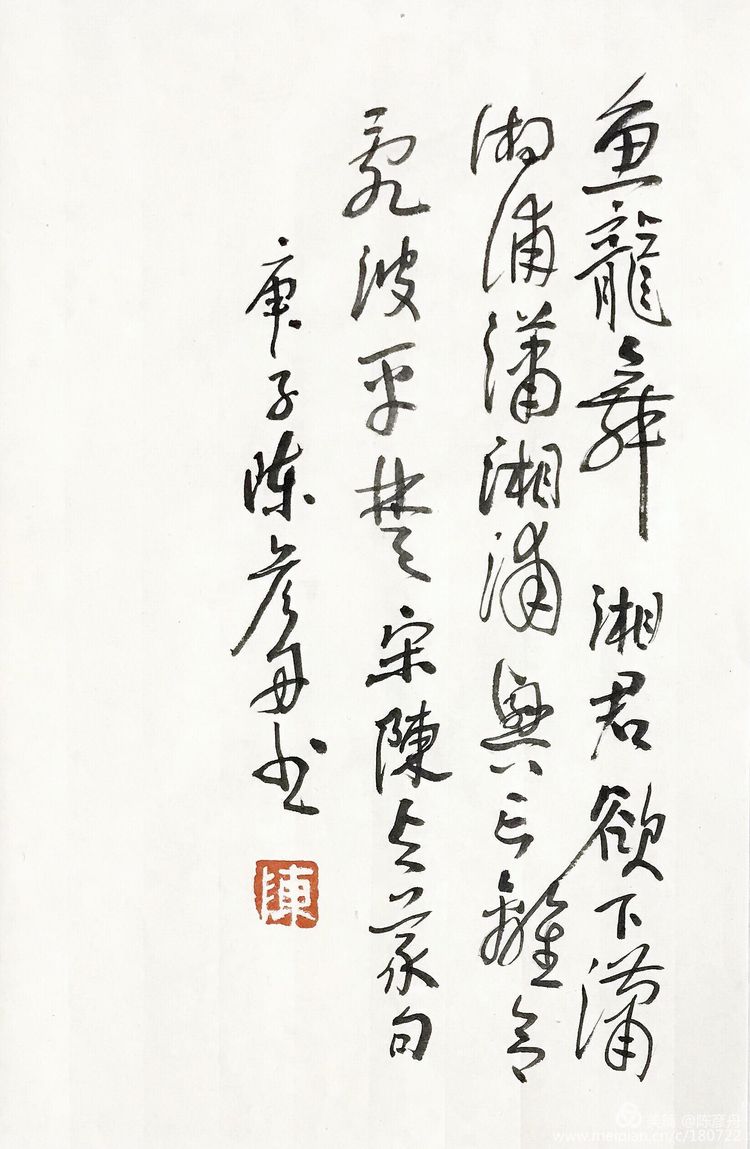 魚龍舞湘君欲下瀟
湘浦瀟湘浦興亡離合
亂波平楚宋陳与義句
庚子陈彦舟书
陳
美篇 @陈彦舟
www.meipian.cn/c/180722